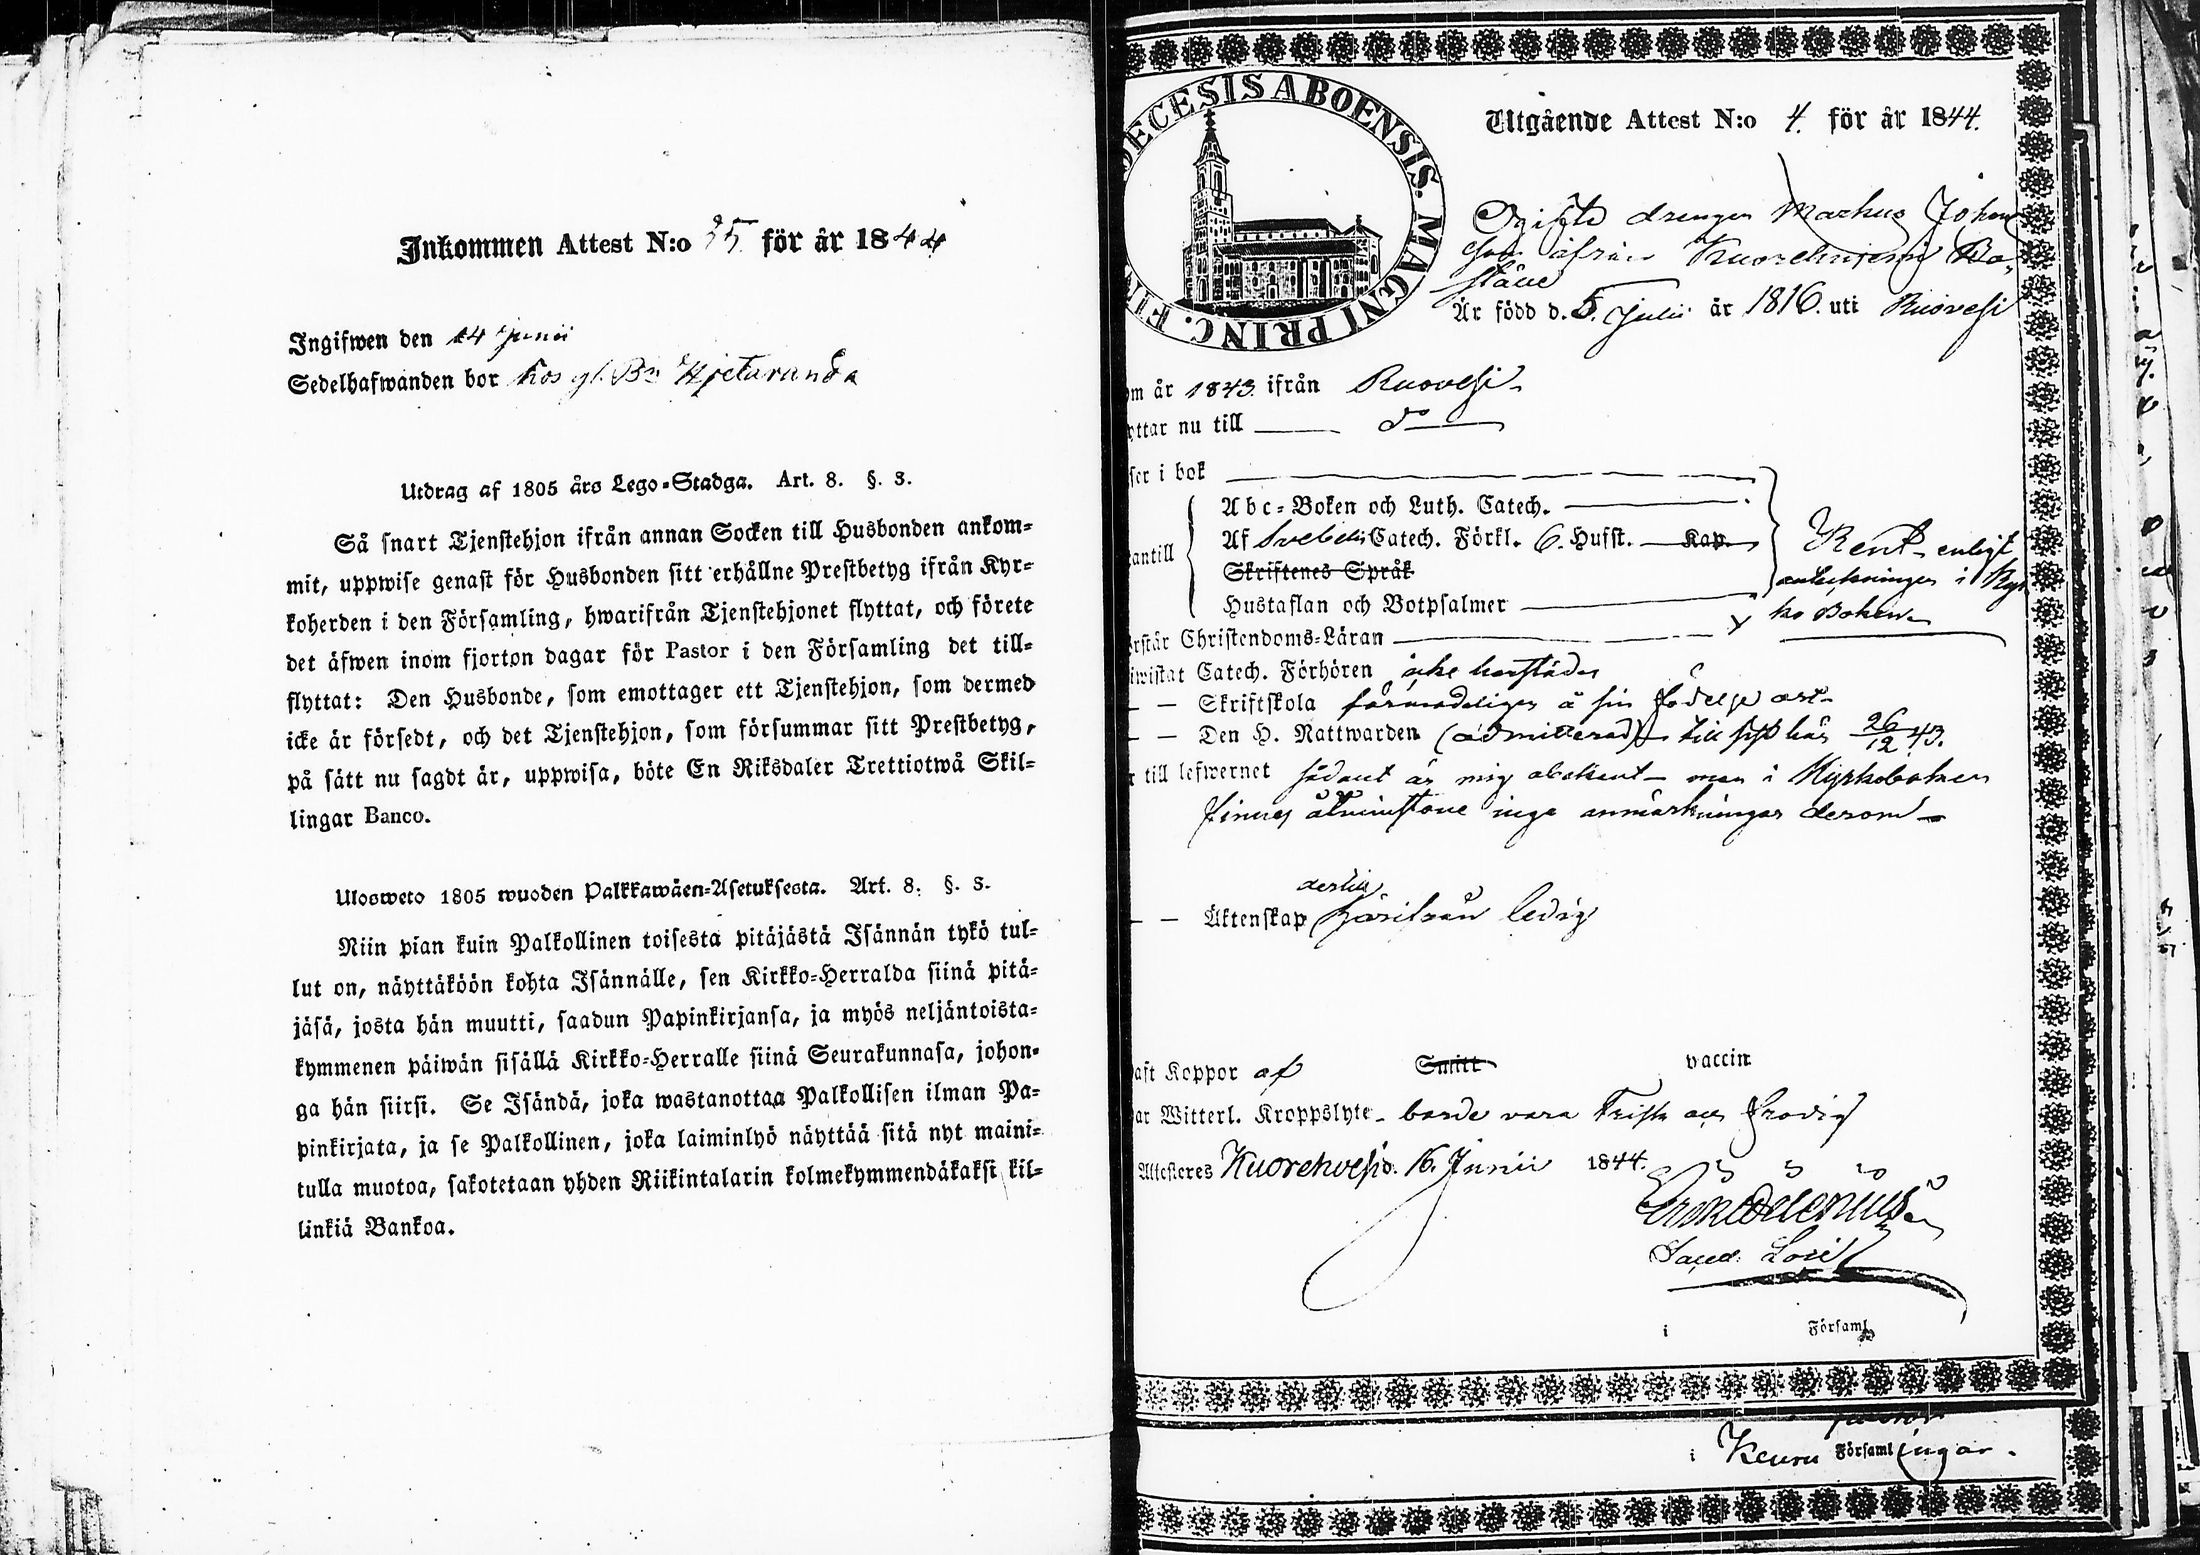 Inkommen Attest N:o 35. för år 1844
Ingifwen den 14 Junii
Sedelhafwanden bor hos
Utdrag af 1805 års Lego-Stadga. Art. 8. §. 3.
Så snart Tjenstehjon ifrån annan Socken till Husbonden ankom-
mit, uppwise genast för Husbonden sitt erhållne Prestbetyg ifrån Kyr-
koherden i den Församling, hwarifrån Tjenstehjonet flyttat, och förete
det äfwen inom fjorton dagar för Pastor i den Församling det till-
flyttat: Den Husbonde, som emottager ett Tjenstehjon, som dermed
icke är försedt, och det Tjenstehjon, som försummar sitt Prestbetyg,
på sätt nu sagdt är, uppwisa, böte En Riksdaler Trettiotwå Skil-
lingar Banco.
Ulosweto 1805 wuoden Palkkawäen-Asetuksesta. Art. 8. §. 3.
Niin pian kuin Palkollinen toisesta pitäjästä Isännän tykö tul-
lut on, näyttäköön kohta Isännälle, sen Kirkko-Herralda siinä pitä-
jäsä, josta hän muutti, saadun Papinkirjansa, ja myös neljäntoista-
kymmenen päiwän sisällä Kirkko-Herralle siinä Seurakunnasa, johon-
ga hän siirsi. Se Isändä, joka wastanottaa Palkollisen ilman Pa-
pinkirjata, ja se Palkollinen, joka laiminlyö näyttää sitä nyt maini-
tulla muotoa, sakotetaan yhden Riikintalarin kolmekymmendäkaksi kil-
linkiä Bankoa.
ECESIS ABOENSIS. MAGNI PRINC. FIN
Utgående Attest N:o 4. för år 1844.
Ogifte drengen Markus Johans
son ifrån Kuorehwesi Bo-
ställe
Är född d. 5. Julii år 1816. uti Ruovesi
om år 1843. ifrån Ruovesi
yttar nu till — d:o
ser i bok
Abc-Boken och Luth. Catech.
antill Af Svebelii Catech. Förkl. 6. Hufst. Kap.
Skriftenes Språk
Hustaflan och Botpsalmer
Kent enligt
anteckningen i Kyr
ko Boken
örstår Christendoms-Läran
iwistat Catech. Förhören icke härstädes
— — Skriftskola förmodeligen å sin födelse ort
— — Den H. Nattwarden (admitterad) till sist här 26/12 43.
r till lefwernet sådant är mig obekant men i Kyrkoboken
finnes åtminstone inga anmärkningar derom
— — Äktenskap dertill härifrån ledig
aft Koppor af Smitt vaccin
ar Witterl. Kroppslyte borde vara frisk och
Attesteres Kuorehvesi d. 16. Junii 1844.
i Församl.
i Keuru Församlingar.